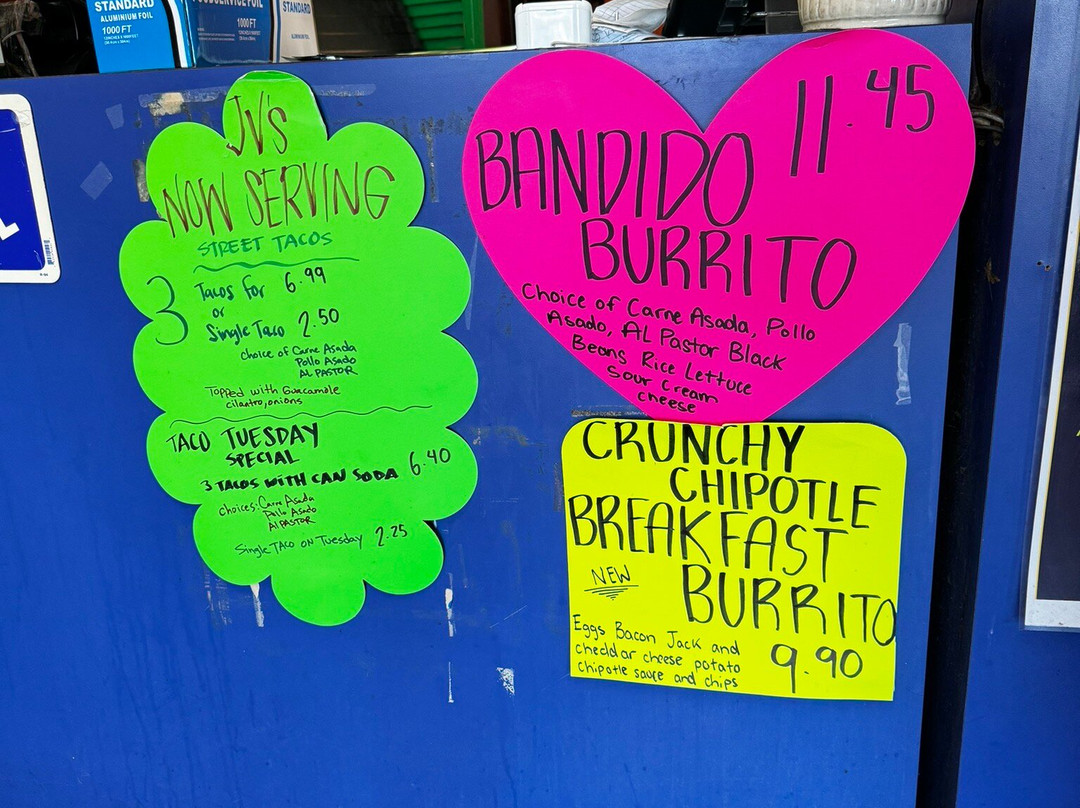 STANDARD
ALUMINIUM FOIL
1000 FT
FOODSERVICE FOIL
1000 FT
STANDARD
JV'S
NOW SERVING
STREET TACOS
3 Tacos for 6.99
or
Single Taco 2.50
choice of Carne Asada
Pollo Asado
AL PASTOR
Topped with Guacamole
cilantro, onions
TACO TUESDAY
SPECIAL
3 TACOS WITH CAN SODA 6.40
choices: Carne Asada
Pollo Asado
Al PASTOR
Single TACO ON Tuesday 2.25
11.45
BANDIDO
BURRITO
Choice of Carne Asada, Pollo
Asado, AL Pastor Black
Beans Rice Lettuce
Sour Cream
cheese
CRUNCHY
CHIPOTLE
BREAKFAST
NEW
BURRITO
Eggs Bacon Jack and
cheddar cheese potato
chipotle sauce and chips
9.90